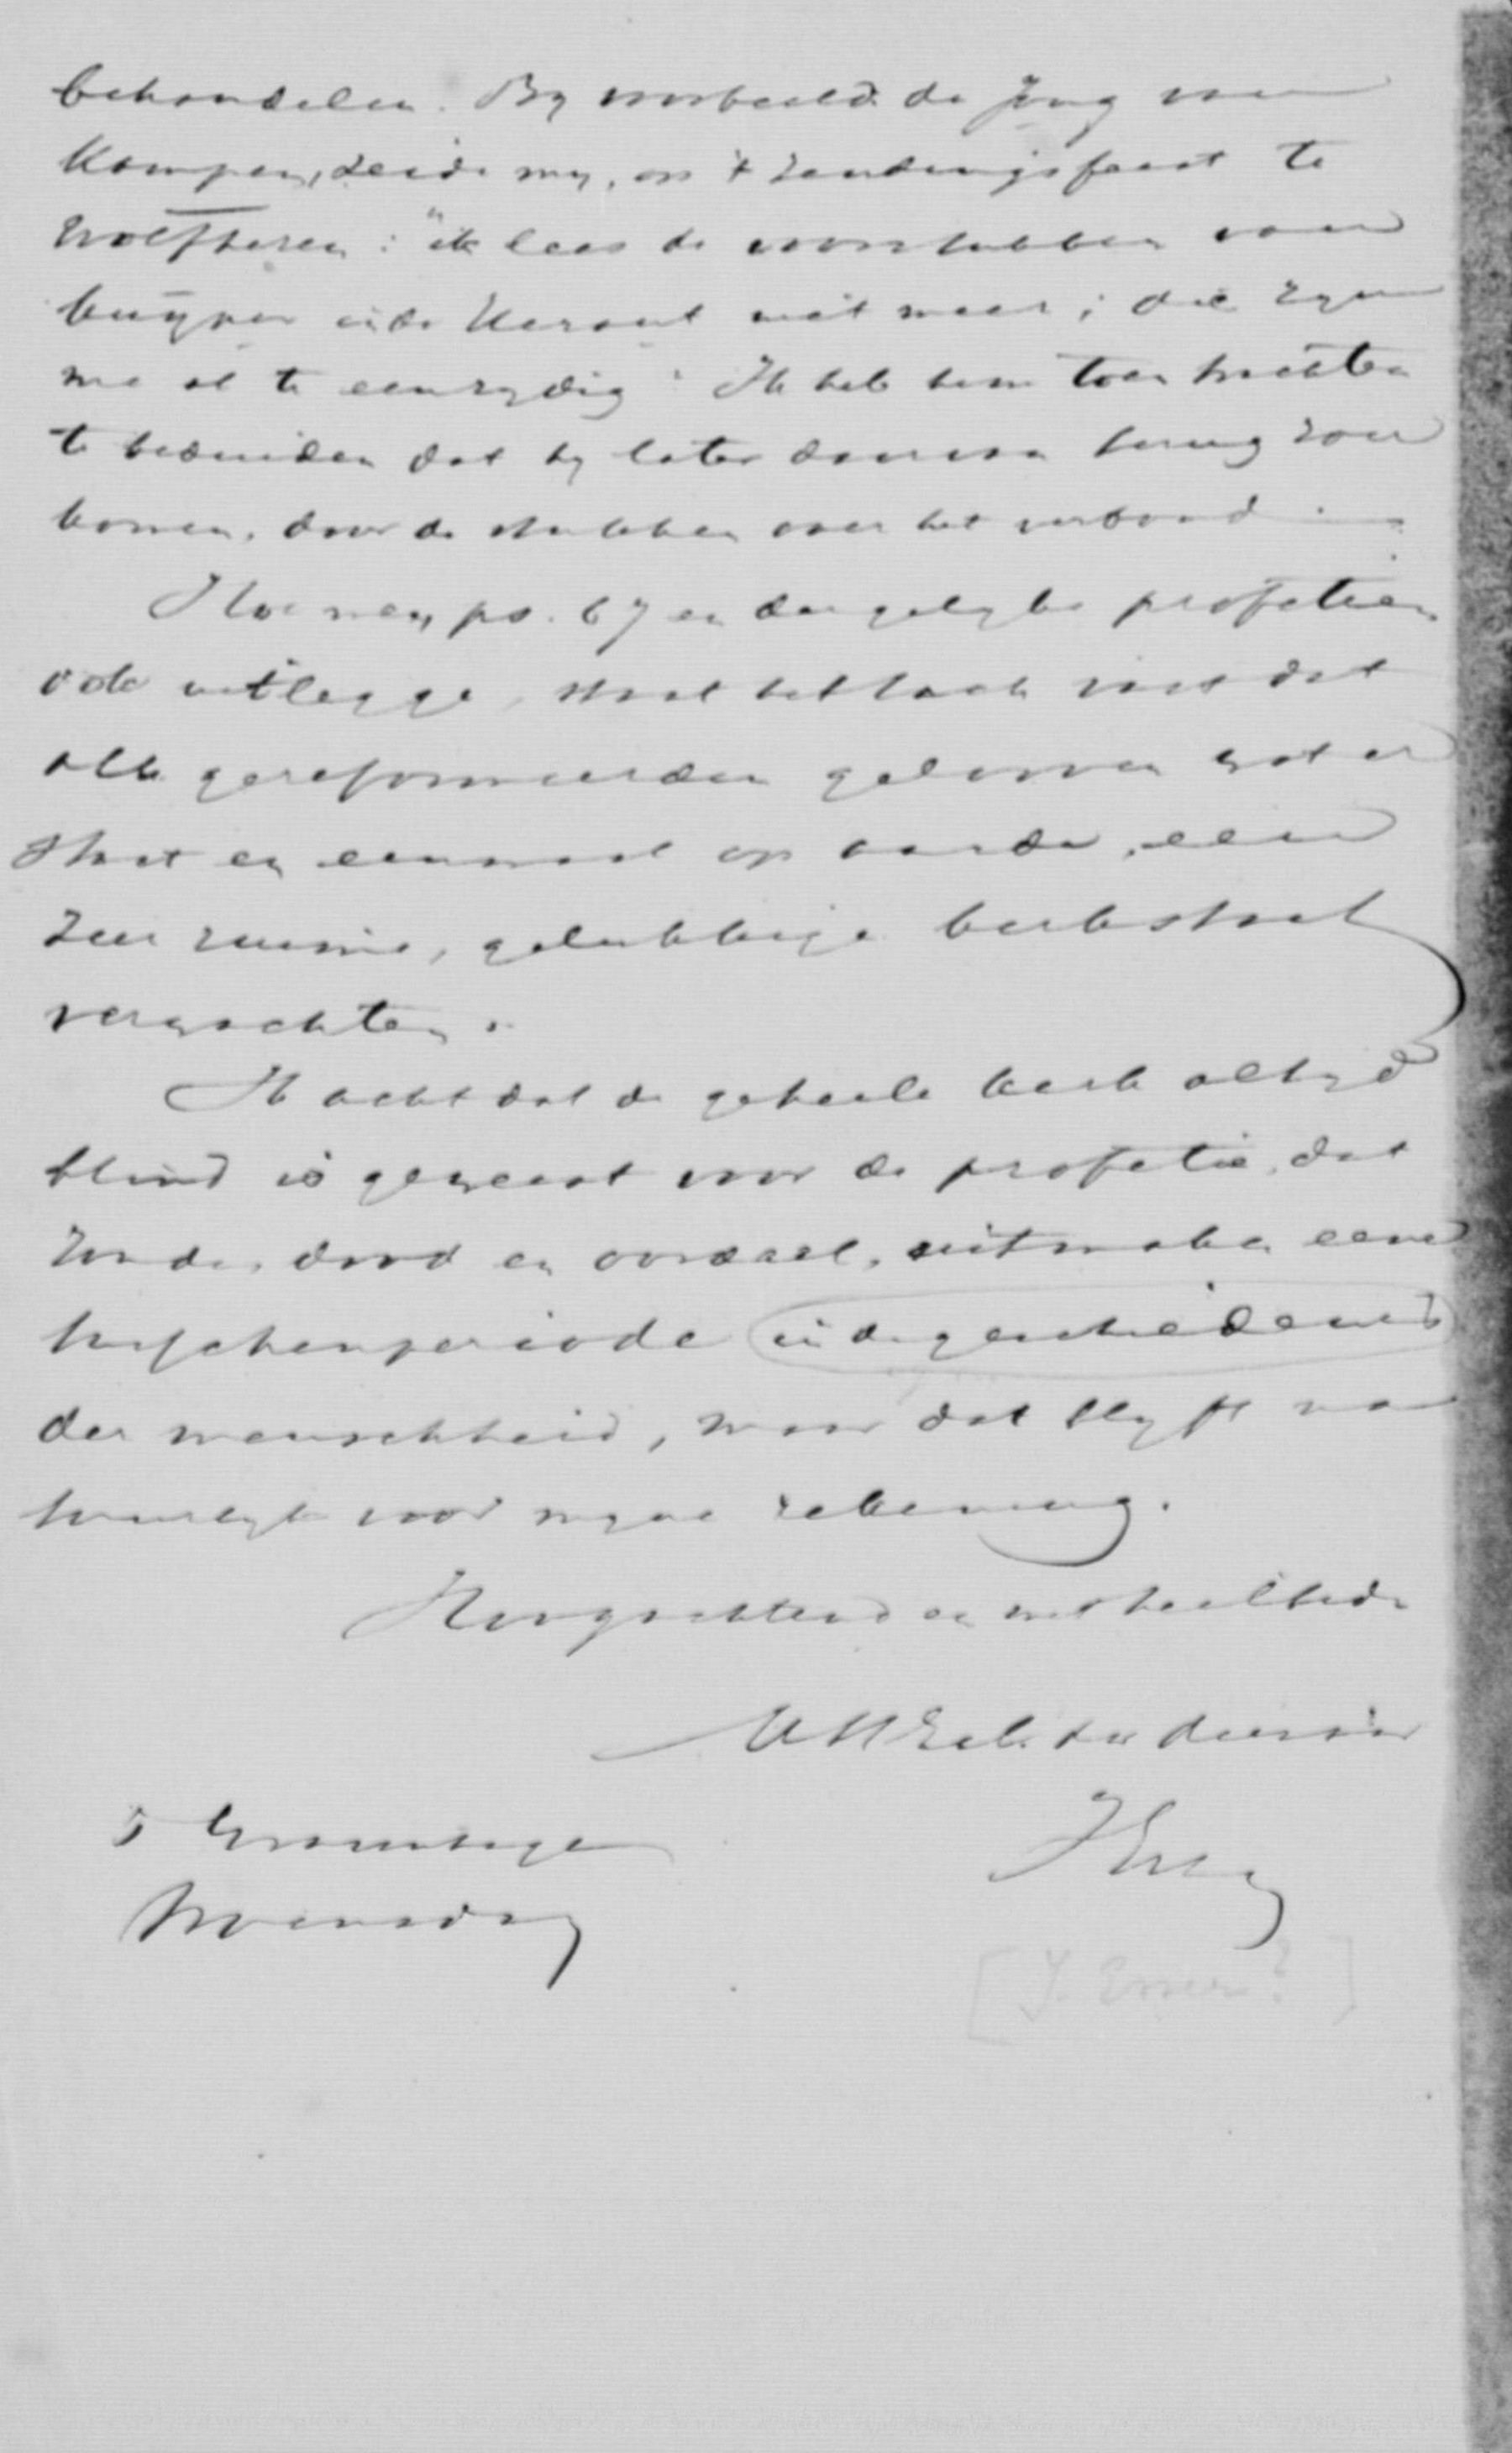 behandelen. By voorbeeld de Jong van
Kampen, zeide my, op 't zendingsfeest te
Wolfheren: "ik lees de voorstukken van
Kuyper in de Heraut niet meer; die zyn
me al te eenzydig". Ik heb hem toen trachten
te beduiden dat hy later daarvan terug zou
komen, door de stukken over het verbond.
Hoe men ps. 67 en dergelyke profetien
ook uitlegge, staat het toch vast dat
alle gereformeerden gelooven wat er
staat en eenmaal op aarde, eene
zeer ruime, gelukkige kerkstaat
verwachten.
Ik acht dat de geheele kerk altyd
blind is geweest voor de profetie, dat
zonde, dood en oordeel, uitmaken eene
tusschenperiode in de geschiedenis
der menschheid, maar dat blyft na
tuurlyk voor myne rekening.
Hoogachtend en met heilbede
UWHEd. dw dienaar
Woensdag
[J. Esser?]